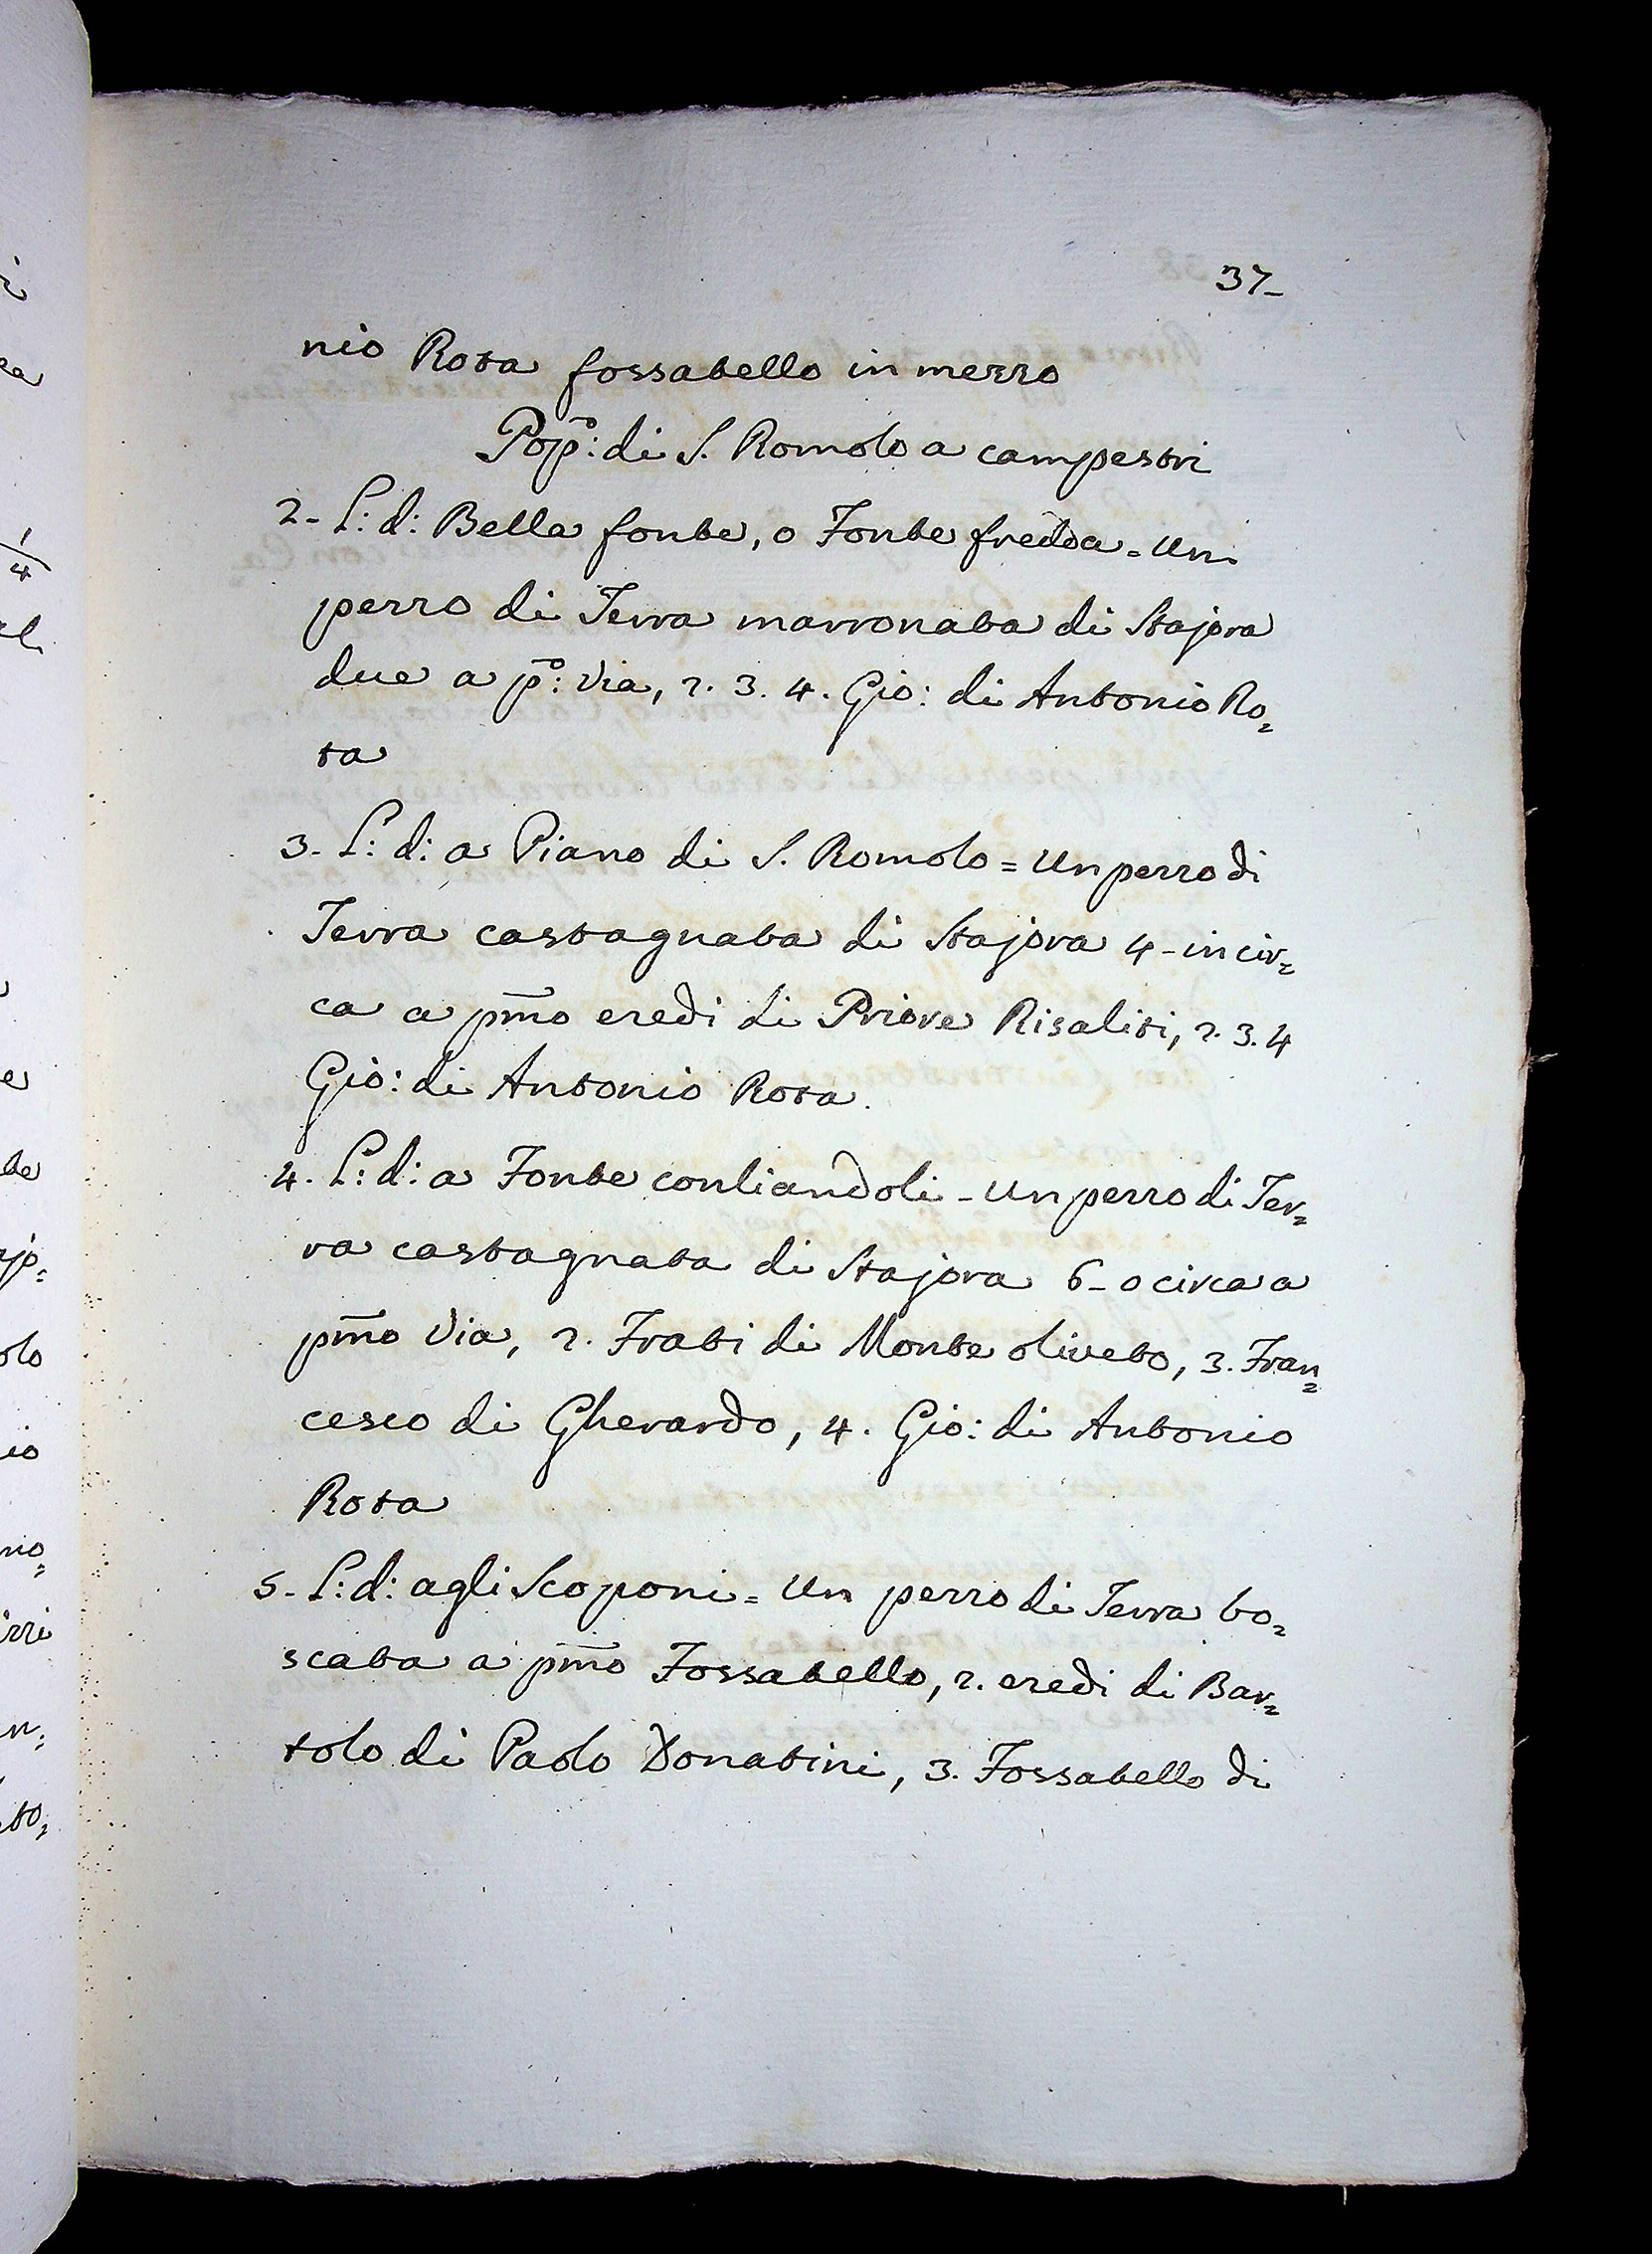 37-
nio Rota fossatello in mezzo
Pop.o: di S. Romolo a campestri
2- L: d: Bella fonte, o Fonte fredda = Un
pezzo di Terra marronata di Stajora
due a p.o: Via, 2. 3. 4. Gio: di Antonio Ro=
ta
3- L: d: a Piano di S. Romolo = Un pezzo di
Terra castagnata di Stajora 4 - in cir=
ca a pmo eredi di Priore Risaliti, 2. 3. 4
Gio: di Antonio Rota.
4. L: d: a Fonte conliandoli - Un pezzo di Ter=
ra castagnata di Stajora 6 - o circa a
pmo Via, 2. Frati di Monte oliveto, 3. Fran=
cesco di Gherardo, 4. Gio: di Antonio
Rota
5- L: d: agli Scoponi = Un pezzo di Terra bo=
scata a pmo Fossatello, 2. eredi di Bar=
tolo di Paolo Donatini, 3. Fossatello di